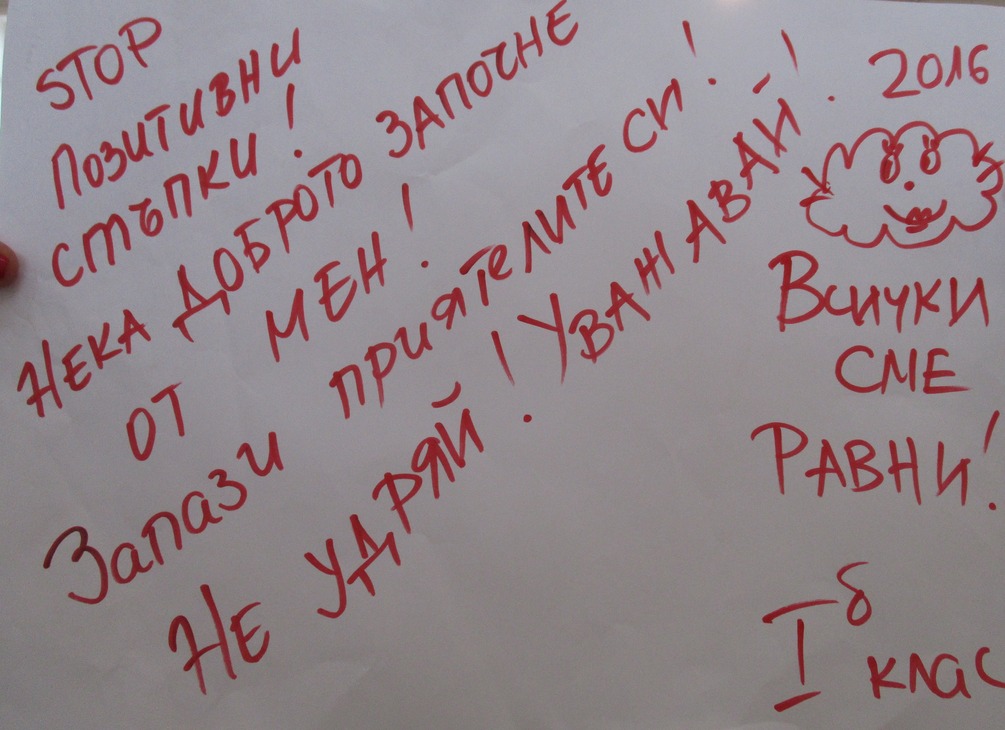 STOP
ПОЗИТИВНИ
СТЪПКИ!
НЕКА ДОБРОТО ЗАПОЧНЕ
ОТ МЕН!
Запази приятелите си!
НЕ УДРЯЙ! УВАЖАВАЙ!
2016
Всички
СМЕ
РАВНИ!
I б клас